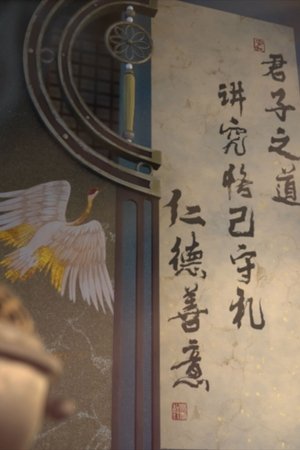 君子之道
讲究恪己守礼
仁德善意